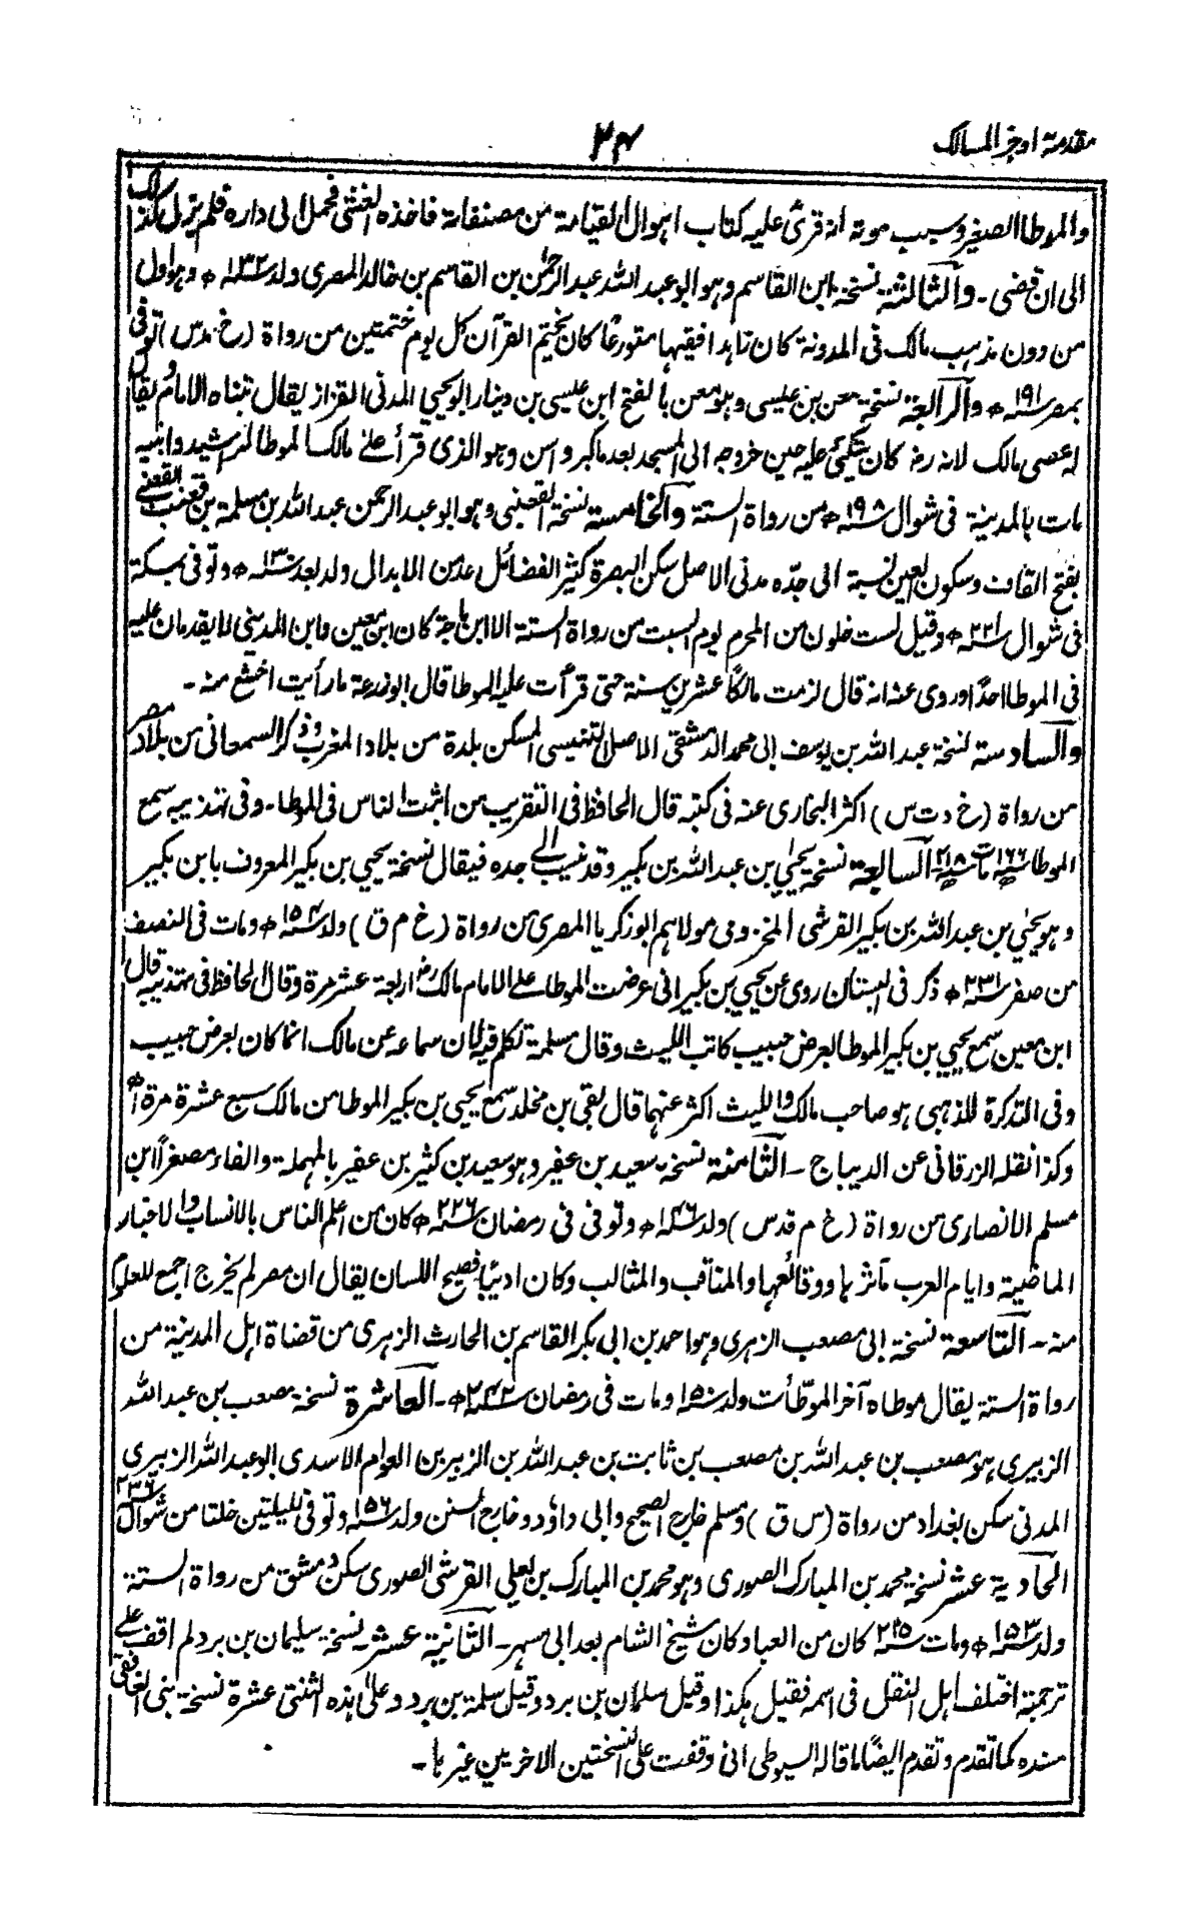 مقدمة اوجز المسالك
٣٤
والموطا الصغير وسبب موته انه قرئ عليه كتاب اهوال القيامة من مصنفاته فاخذه الغشى فحمل الى داره فلم يزل كذلك
الى ان قضى ـ والثالثة نسخة ابن القاسم وهو ابو عبد الله عبد الرحمٰن بن القاسم بن خالد المصرى ولد ١٣٢ھ وهو اول
من دون مذهب مالك فى المدونة كان زاهدا فقيها متورعًا كان يختم القرآن كل يوم ختمتين من رواة (خ مد س) توفى
بمصر ١٩١ھ والرابعة نسخة معن بن عيسى وهو معن بالفتح ابن عيسى بن دينار ابو يحيى المدنى القزاز يقال تبناه الامام ويقال
له عصى مالك لانه رضـ كان يتكئ عليه حين خروجه الى المسجد بعد ما كبر واسن وهو الذى قرأ على مالك الموطا للرشيد وابنيه
مات بالمدينة فى شوال ١٩٨ھ من رواة الستة والخامسة نسخة القعنبى وهو ابو عبد الرحمن عبد الله بن مسلمة بن قعنب القعنبى
بفتح القاف وسكون العين نسبة الى جدّه مدنى الاصل سكن البصرة كثير الفضائل عد من الابدال ولد بعد ١٣٠ھ وتوفى بمكة
فى شوال ٢٢١ھ وقيل لست خلون من المحرم يوم السبت من رواة الستة الا ابن ماجة كان ابن معين وابن المدينى لا يقدمان عليه
فى الموطا احدًا وروى عنه انه قال لزمت مالكًا عشرين سنة حتى قرأت عليه الموطا قال ابو زرعة ما رأيت اخشع منه ـ
والسادسة نسخة عبد الله بن يوسف ابى محمد الدمشقى الاصل التنيسى المسكن بلدة من بلاد المغرب وذكر السمعانى من بلاد مصر
من رواة (خ د ت س) اكثر البخارى عنه فى كتبه قال الحافظ فى التقريب من اثبت الناس فى الموطا ـ وفى تهذيبه سمع
الموطا ١٦٦ھ مات ٢١٨ھ السابعة نسخة يحيىٰ بن عبد الله بن بكير وقد نسب الى جده فيقال نسخة يحيى بن بكير المعروف بابن بكير
وهو يحيىٰ بن عبد الله بن بكير القرشى المخزومى مولاهم ابو زكريا المصرى من رواة (خ م ق) ولد ١٥٤ھ ومات فى النصف
من صفر ٢٣١ھ ذكر فى البستان روى عن يحيى بن بكير انى عرضت الموطا على الامام مالك رضـ اربعة عشر مرة وقال الحافظ فى تهذيبه قال
ابن معين سمع يحيى بن بكير الموطا بعرض حبيب كاتب الليث وقال مسلمة تكلم فيه لان سماعه عن مالك انما كان بعرض حبيب
وفى التذكرة للذهبى هو صاحب مالك والليث اكثر عنهما قال بقى بن مخلد سمع يحيى بن بكير الموطا من مالك سبع عشرة مرة اھ
وكذا نقله الزرقانى عن الديباج ـ الثامنة نسخة سعيد بن عفير وهو سعيد بن كثير بن عفير بالمهملة والفاء مصغراً ابن
مسلم الانصارى من رواة (خ م قد س) ولد ١٤٦ھ وتوفى فى رمضان ٢٢٦ھ كان من اعلم الناس بالانساب والاخبار
الماضية وايام العرب مآثرها ووقائعها والمناقب والمثالب وكان اديبًا فصيح اللسان يقال ان مصر لم يخرج اجمع للعلوم
منه ـ التاسعة نسخة ابى مصعب الزهرى وهو احمد بن ابى بكر القاسم بن الحارث الزهرى من قضاة اهل المدينة من
رواة الستة يقال موطاه آخر الموطّأت ولد ١٥٠ ومات فى رمضان ٢٤٢ھ ـ العاشرة نسخة مصعب بن عبد الله
الزبيرى هو مصعب بن عبد الله بن مصعب بن ثابت بن عبد الله بن الزبير بن العوام الاسدى ابو عبد الله الزبيرى
المدنى سكن بغداد من رواة (س ق) ومسلم خارج الصحيح وابى داؤد خارج السنن ولد ١٥٦ وتوفى لليلتين خلتا من شوال ٢٣٦
الحادية عشر نسخة محمد بن المبارك الصورى وهو محمد بن المبارك بن يعلى القرشى الصورى سكن دمشق من رواة الستة
ولد ١٥٣ھ ومات ٢١٥ كان من العباد كان شيخ الشام بعد ابى مسهر ـ الثانية عشر ـ نسخة سليمان بن برد لم اقف على
ترجمة اختلف اهل النقل فى اسمه فقيل هكذا وقيل سلمان بن برد وقيل سلمة بن برد وعلىٰ هذه الثنتى عشرة نسخة بنى الغافقى
مسنده كما تقدم وتقدم ايضًا ما قاله السيوطى انى وقفت على النسختين الاخريين غيرها ـ